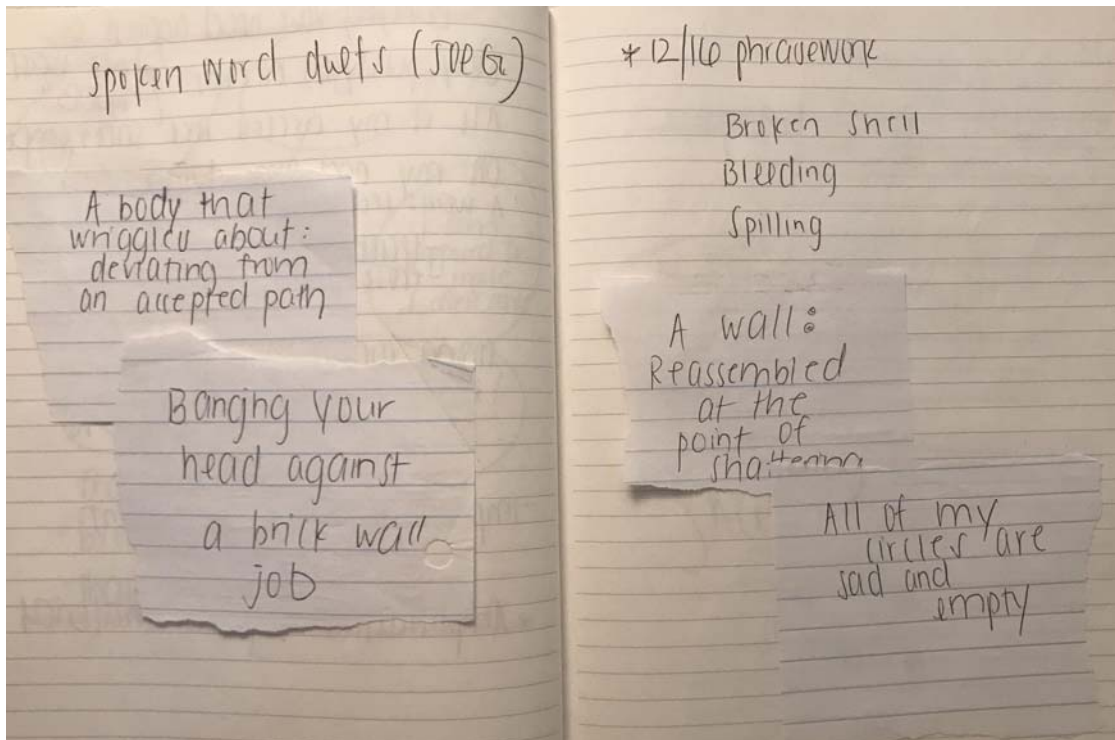 spoken word duets (JOEGi)
A body that
wriggles about:
deviating from
an accepted path
Banging your
head against
a brick wall
job
* 12/16 phrasework
Broken shell
Bleeding
Spilling
A wall:
Reassembled
at the
point of
shattering
All of my
circles are
sad and
empty